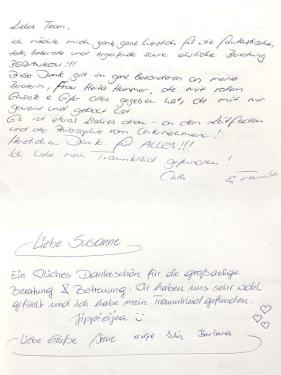 Liebes Team,
ich möchte mich ganz, ganz herzlich für die fantastische,
tolle, liebevolle und ergreifende sowie ehrliche Beratung
BEDANKEN!!!
Dieser Dank gilt im ganz Besonderen an meine
Beraterin, Frau Heike Hummer, die mit vollem
Einsatz & Eifer alles gegeben hat, die mit mir
geweint und gelacht hat
Es ist etwas Wahres dran - an den Leitfäden
und der Philosophie vom Unternehmen!
Herzlichen Dank für ALLES!!!
Ich habe mein Traumkleid gefunden!
Liebe Susanne
Ein Dliches Dankeschön für die großartige
Beratung & Betreuung. Wir haben uns sehr wohl
gefühlt und ich habe mein Traumkleid gefunden.
Jippieijea
Liebe Grüße Barbara